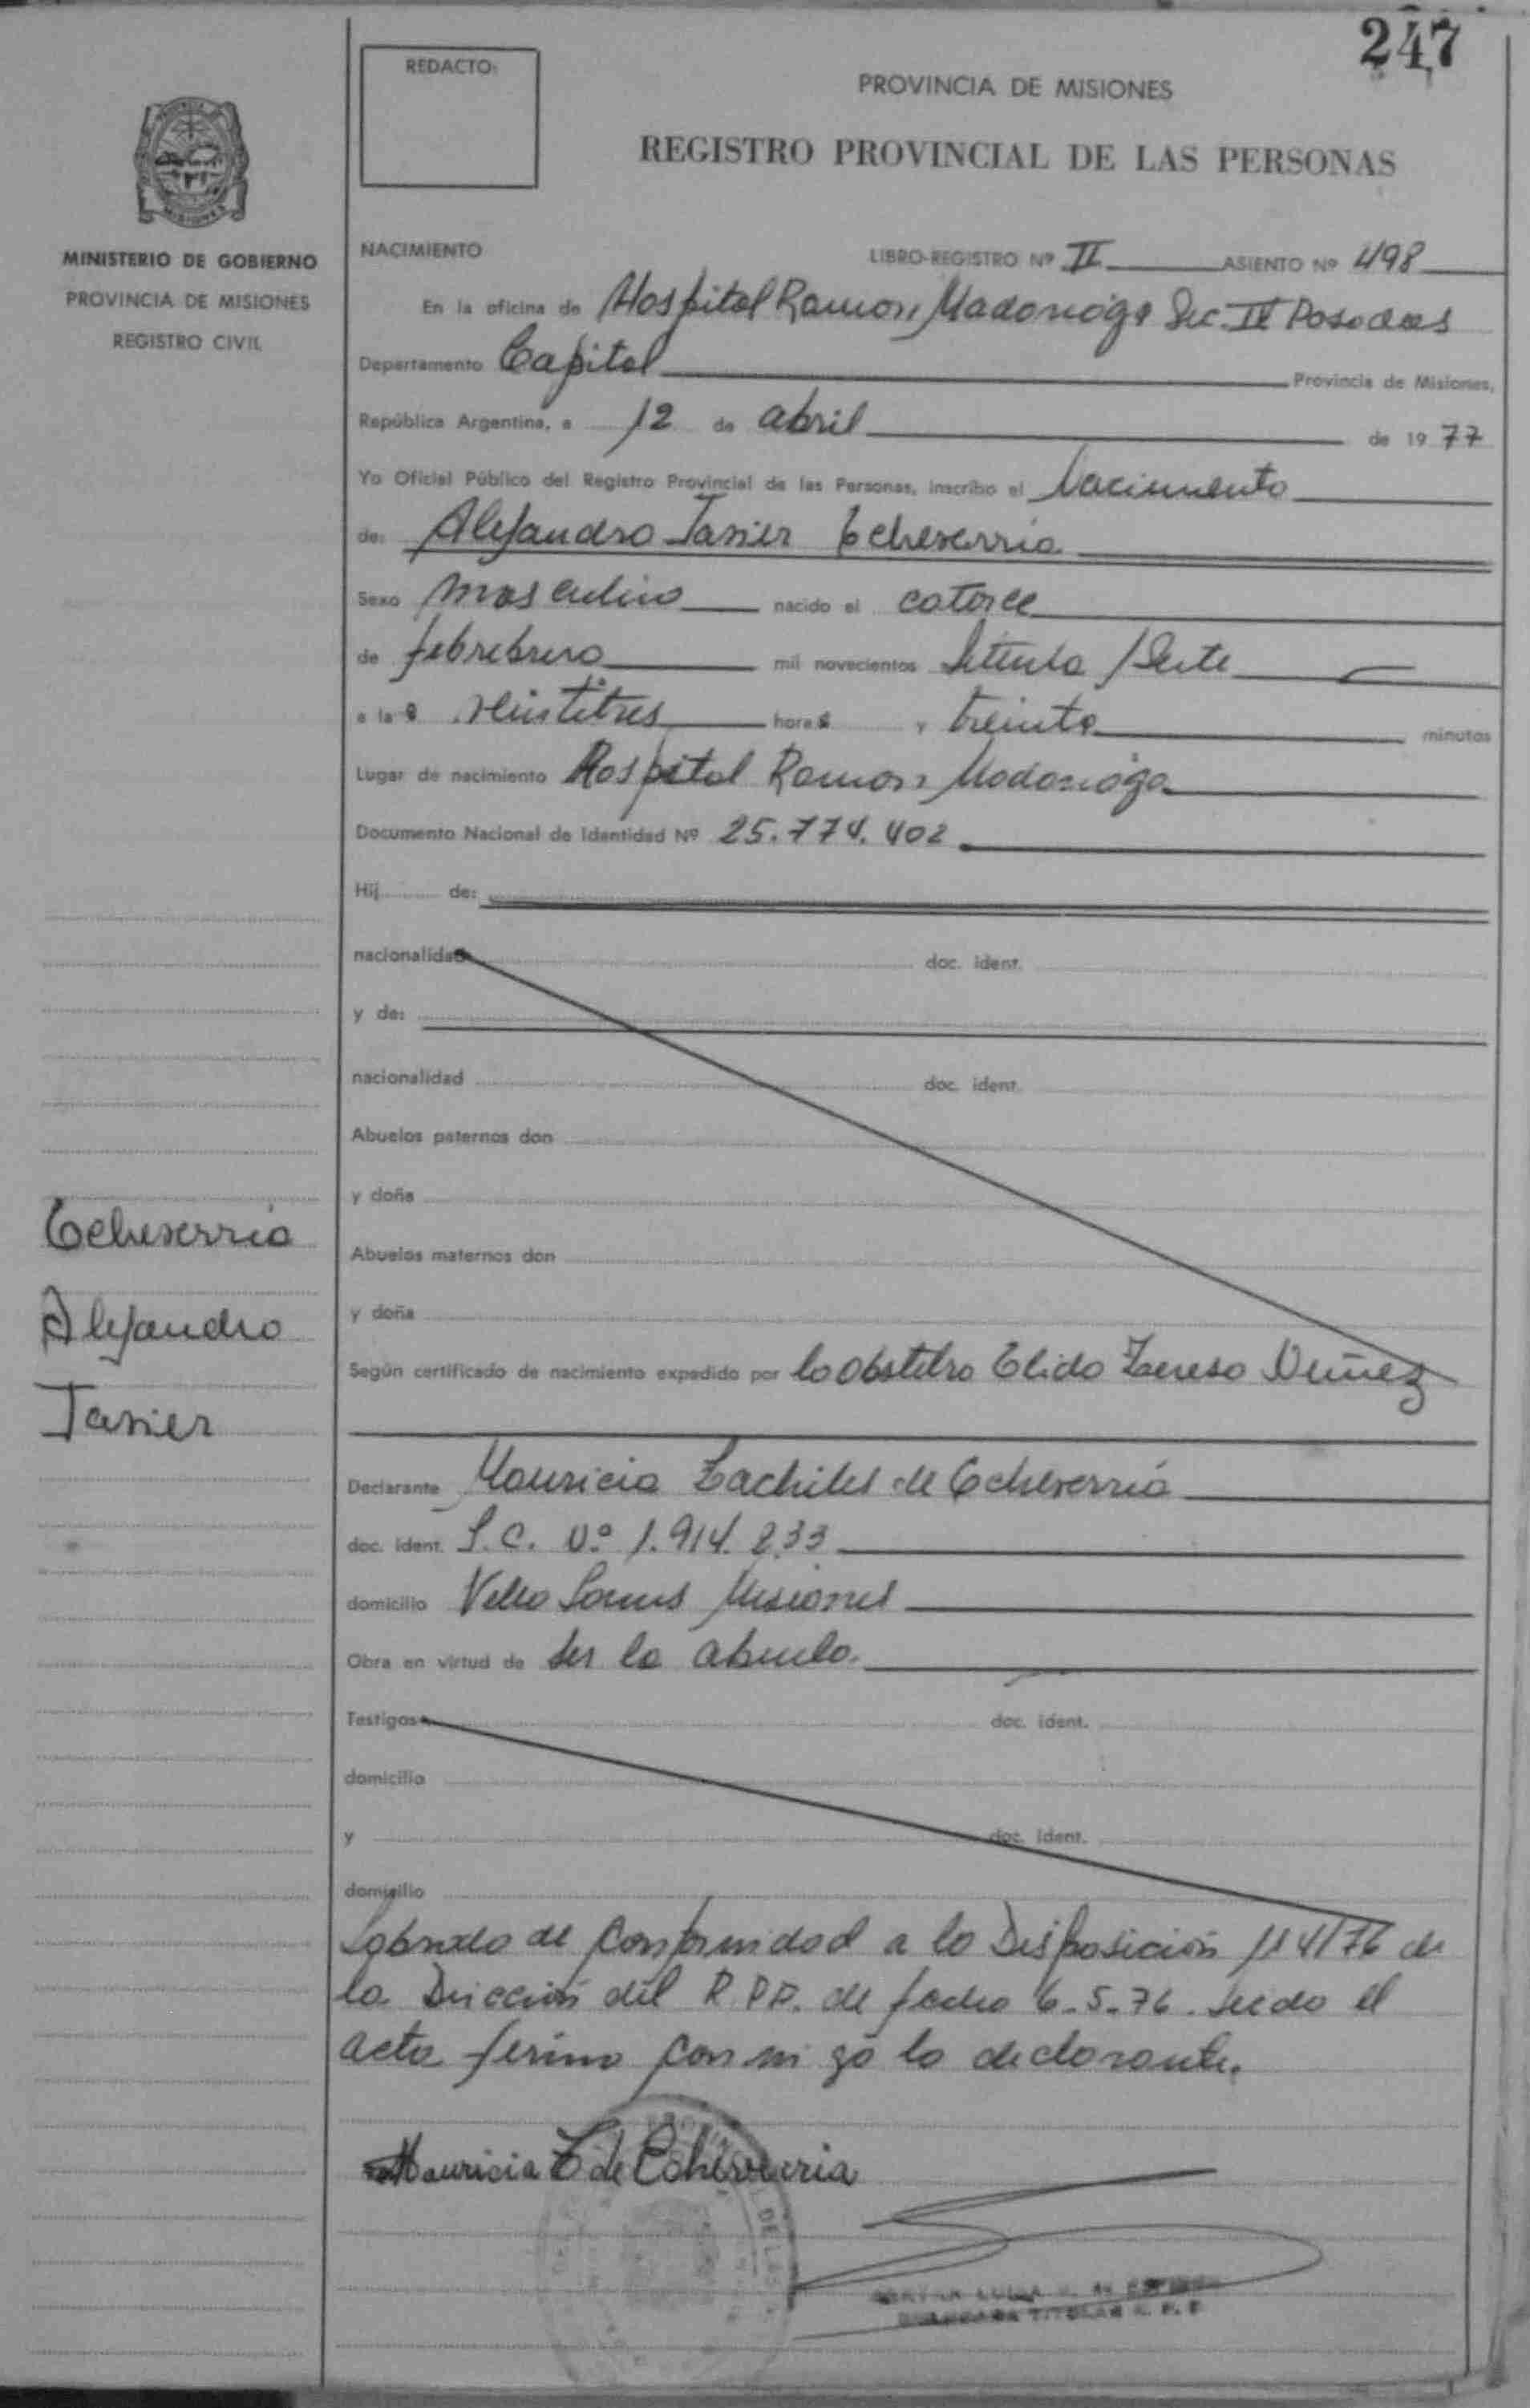 247
REDACTO:
PROVINCIA DE MISIONES
REGISTRO PROVINCIAL DE LAS PERSONAS
MINISTERIO DE GOBIERNO
PROVINCIA DE MISIONES
REGISTRO CIVIL
NACIMIENTO LIBRO-REGISTRO Nº II ASIENTO Nº 498
En la oficina de Hospital Ramon Madariaga Sec. II Posadas
Departamento Capital Provincia de Misiones,
República Argentina, a 12 de abril de 1977
Yo Oficial Público del Registro Provincial de las Personas, inscribo el Nacimiento
de: Alejandro Javier Echeverria
Sexo masculino nacido el catorce
de febrebrero mil novecientos setenta /siete
a las veintitres horas y treinta minutos
Lugar de nacimiento Hospital Ramon Madariaga
Documento Nacional de Identidad Nº 25.774.402
Hij de:
nacionalidad doc. ident.
y de:
nacionalidad doc. ident.
Abuelos paternos don
y doña
Abuelos maternos don
y doña
Según certificado de nacimiento expedido por la obstetra Elida Teresa Nuñez
Echeverria
Alejandro
Javier
Declarante Mauricia Zachiles de Echeverria
doc. ident. L.C. Nº 1.914.233
domicilio Misiones
Obra en virtud de ser la abuela.
Testigos doc. ident.
domicilio
y doc. ident.
domicilio
Labrada de conformidad a la Disposición 114/76 de
la Dirección del R.P.P. de fecha 6-5-76. Leida el
acta firma con mi go la declarante.
Mauricia Z de Echeverria
TITULAR R. P. P.